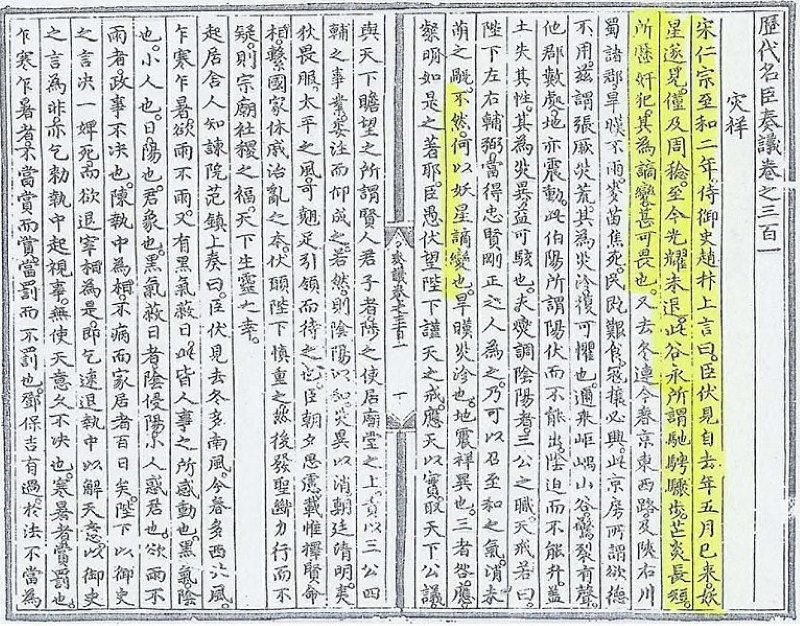 歷代名臣奏議卷之三百一
灾祥
宋仁宗至和二年侍御史趙抃上言曰臣伏見自去年五月已來妖
星遂見僅及周稔至今光耀未退此谷永所謂馳騁驟步芒炎長短
所歷奸犯其為謫變甚可畏也又去冬連今春京東西路及陝右川
蜀諸郡旱暵不雨麥苗焦死民既艱食寇攘必興此京房所謂欲德
不用茲謂張厥灾荒其為灾沴復可懼也邇來岠嵎山谷驚裂有聲
他郡數處地亦震動此伯陽所謂陽伏而不能出陰迫而不能升蓋
土失其性其為灾異益可駭也夫燮調陰陽者三公之職天戒若曰
陛下左右輔弼當得忠賢剛正之人為之乃可以召至和之氣消未
萌之 不然何以妖星謫變也旱暵灾沴也地震祥異也三者咎應
粲明如是之著耶臣愚伏望陛下謹天之戒應天以實取天下公議
奏議卷之三百一
一
與天下瞻望之所謂賢人君子者陟之使居廟堂之上責以三公四
輔之事業安注而仰成之若然則陰陽以和灾異以消朝廷清明夷
狄畏服太平之風可翹足引領而待之臣朝夕思慮載惟擇賢命
相繫國家休戚治亂之本伏願陛下慎重之然後發聖斷力行而不
疑則宗廟社稷之福天下生靈之幸
起居舍人知諫院范鎮上奏曰臣伏見去冬多南風今春多西北風
乍寒乍暑欲雨不雨又有黑氣蔽日此皆人事之所感動也黑氣陰
也小人也日陽也君象也黑氣蔽日者陰侵陽小人惑君也欲雨不
雨者政事不决也陳執中為相不病而家居者百日矣陛下以御史
之言决一婢死而欲退宰相為是即乞速退執中以解天意以御史
之言為非亦乞勅執中起視事無使天意久不决也寒暑者賞罰也
乍寒乍暑者不當賞而賞當罰而不罰也鄧保吉有過於法不當為